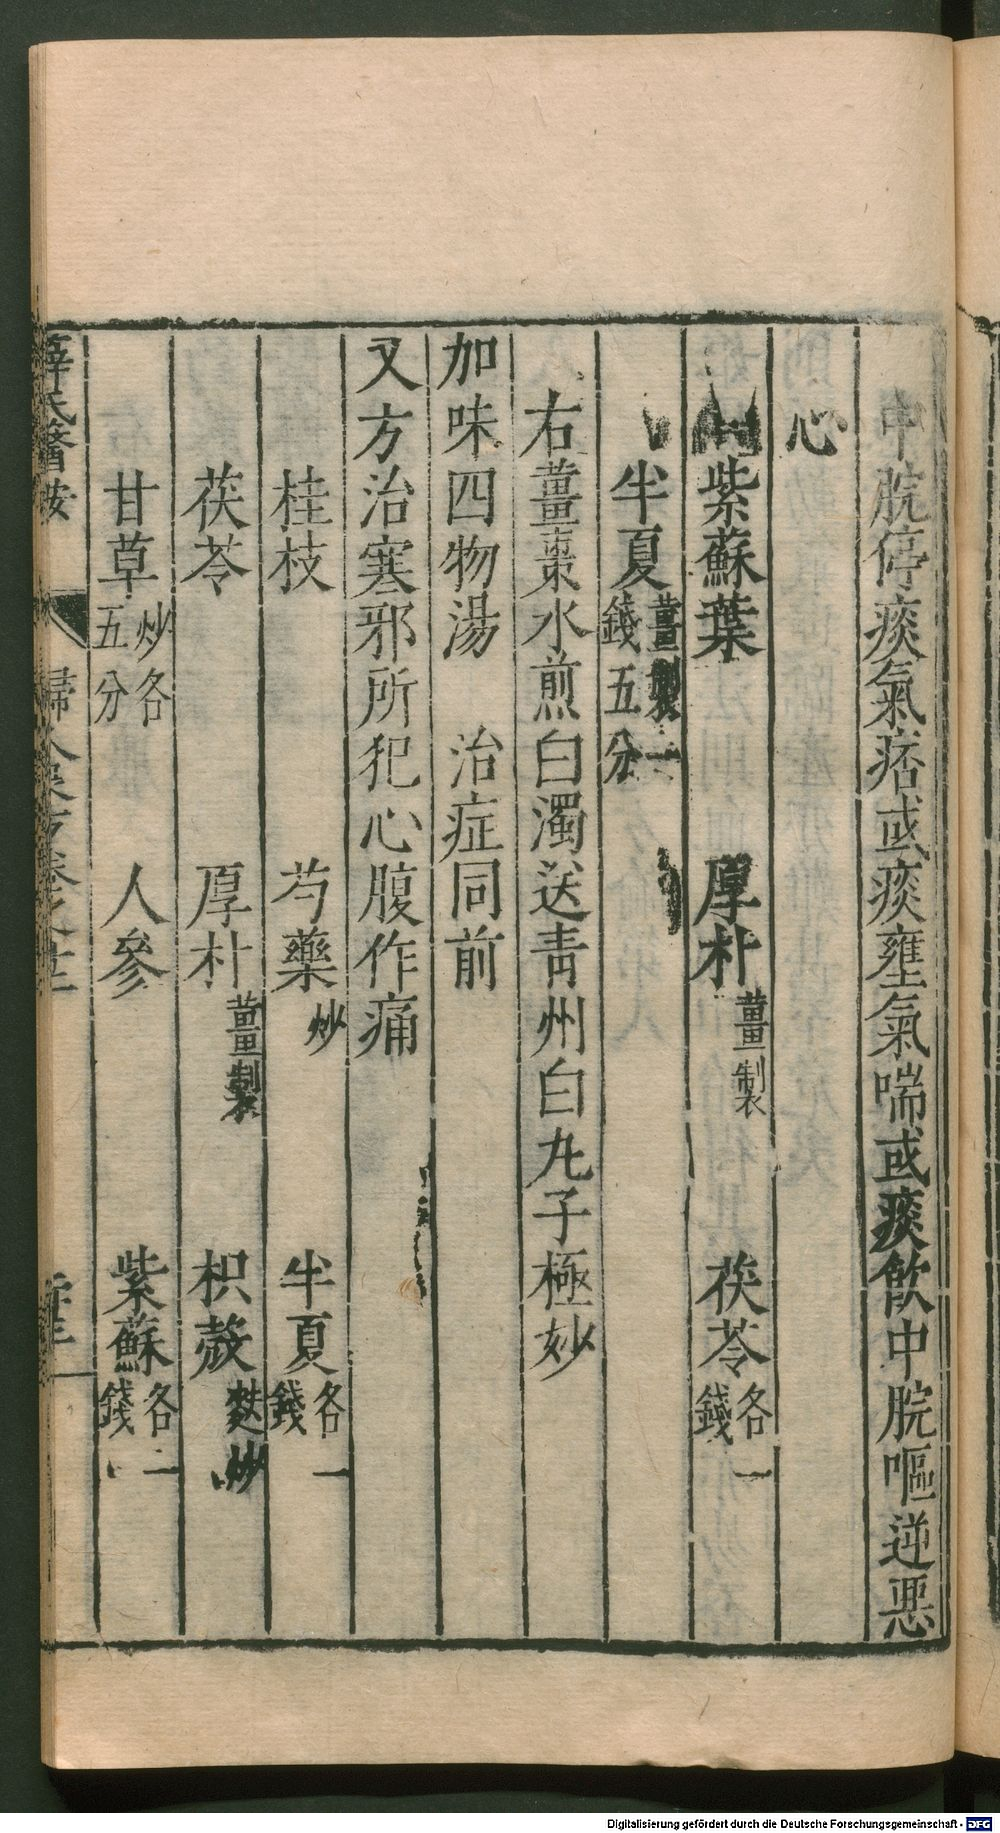 中脘停痰氣痞或痰壅氣喘或痰飲中脘嘔逆惡
心
紫蘇葉　厚朴薑製　茯苓各一錢
半夏薑製一錢五分
右薑棗水煎白濁送青州白丸子極妙
加味四物湯　治症同前
又方治寒邪所犯心腹作痛
桂枝　芍藥炒　半夏各一錢
茯苓　厚朴薑製　枳殼麩炒
甘草炒各五分　人參　紫蘇各一錢
薛氏醫按　婦人良方卷之
Digitalisierung gefördert durch die Deutsche Forschungsgemeinschaft - DFG